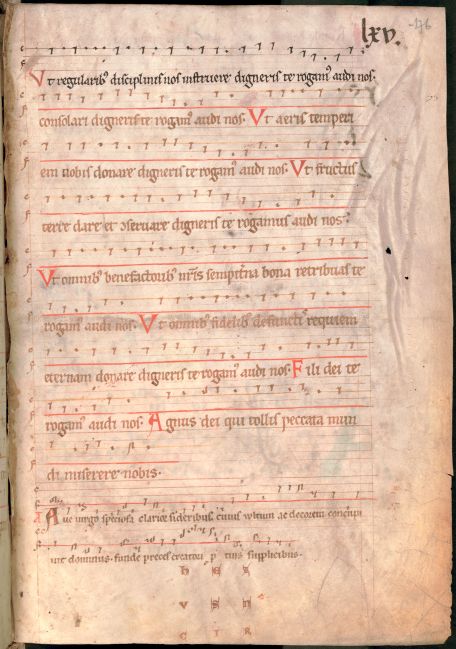 lxv.
176
Vt regularib' disciplinis nos instruere digneris te rogam' audi nos.
consolari digneris te rogam' audi nos. Vt aeris temperi
em nobis donare digneris te rogam' audi nos. Vt fructus
terre dare et ɔseruare digneris te rogamus audi nos.
Vt omnib' benefactorib' nr̄is sempit̄na bona retribuas te
rogam' audi nos. Vt omnib' fidelib' defuncti' requiem
eternam donare digneris te rogam' audi nos. Fili dei te
rogam' audi nos. Agnus dei qui tollis peccata mun
di miserere nobis.
Aue uirgo speciosa clarior sideribus. cuius uultum ac decorem concupi
uit dominus. funde preces creatori p tuis supplicibus.